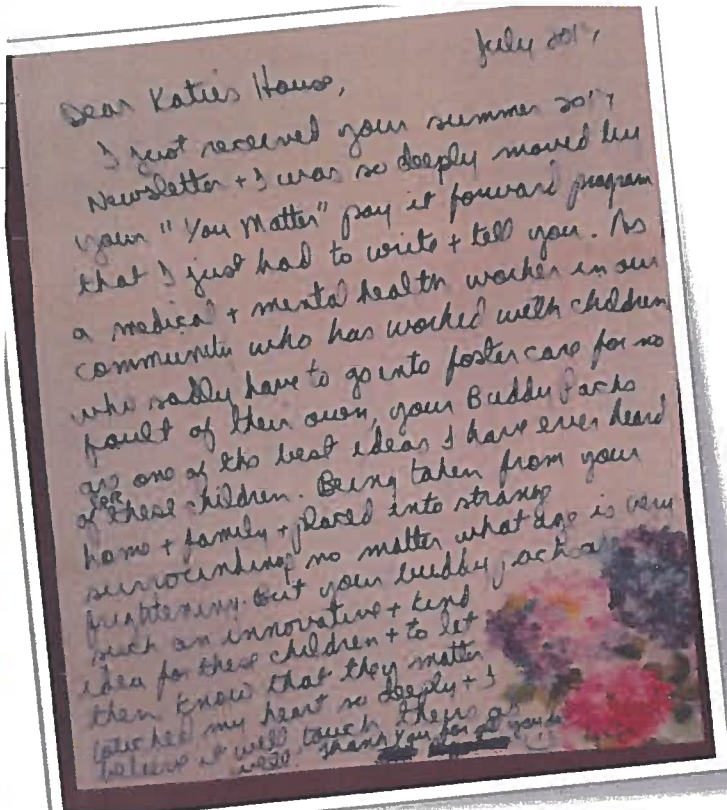 July 2017
Dear Katie's House,
I just received your summer 2017
Newsletter + I was so deeply moved by
your "You Matter" pay it forward program
that I just had to write + tell you. As
a medical + mental health worker in our
community who has worked with children
who sadly have to go into foster care for no
fault of their own, your Buddy Packs
are one of the best ideas I have ever heard
of FOR these children. Being taken from your
home + family + placed into strange
surroundings no matter what age is very
frightening. But your buddy pack
such an innovative + kind
idea for these children + to let
then know that they matter
touched my heart so deeply + I
believe it will touch theirs as
well. Thank you for all you do